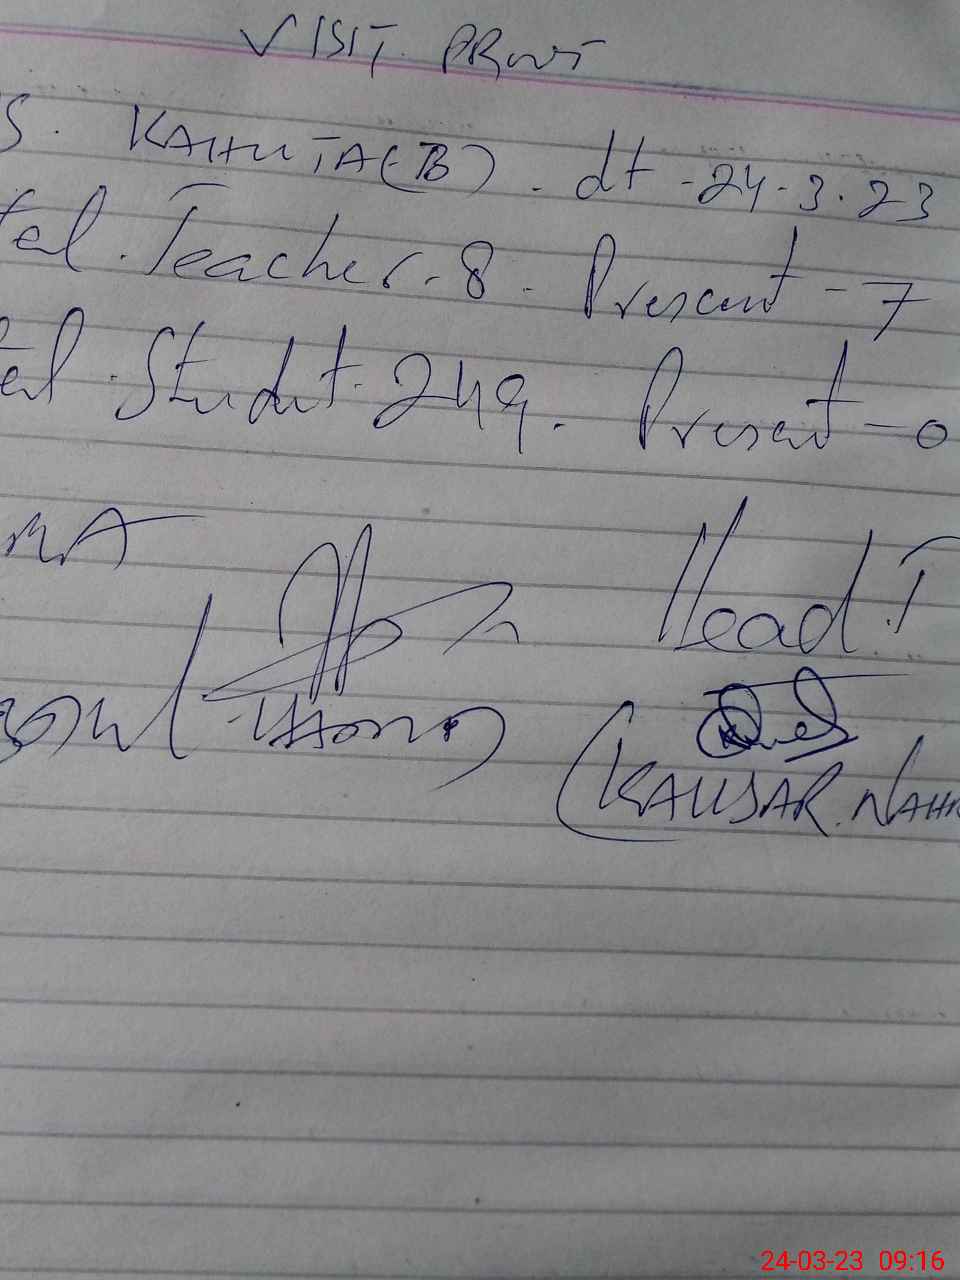 VISIT PROOF
S. KAHUTA(B). dt - 24.3.23
tal. Teacher - 8. Present - 7
tal. Studnt. 249. Present - 0
MA Head.T
(KAUSAR. NAH
24-03-23 09:16